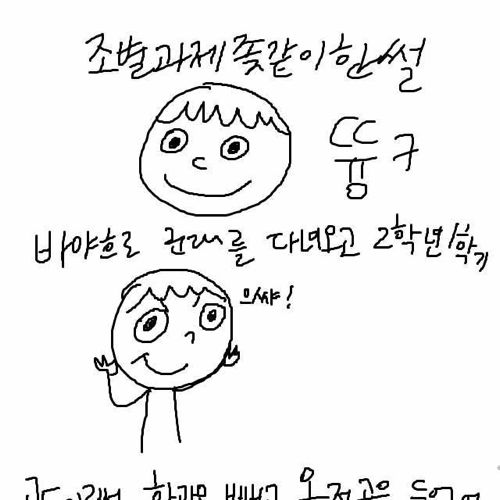 조별과제 좆같이한 썰
뜡구
바야흐로 군대를 다녀오고 2학년1학기
으쌰!